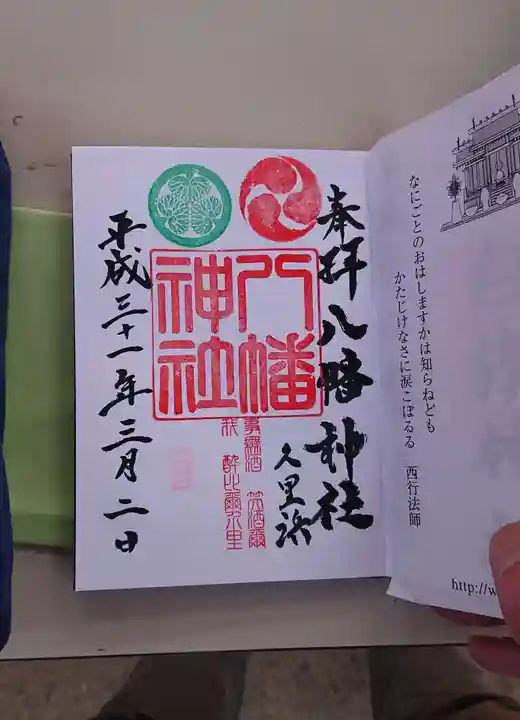 なにごとのおはしますかは知らねども
かたじけなさに涙こぼるる 西行法師
http://w
奉拝 八幡神社
久里浜
八幡
神社
事無酒 笑酒爾
我 酔比爾祁里
平成三十一年三月二日